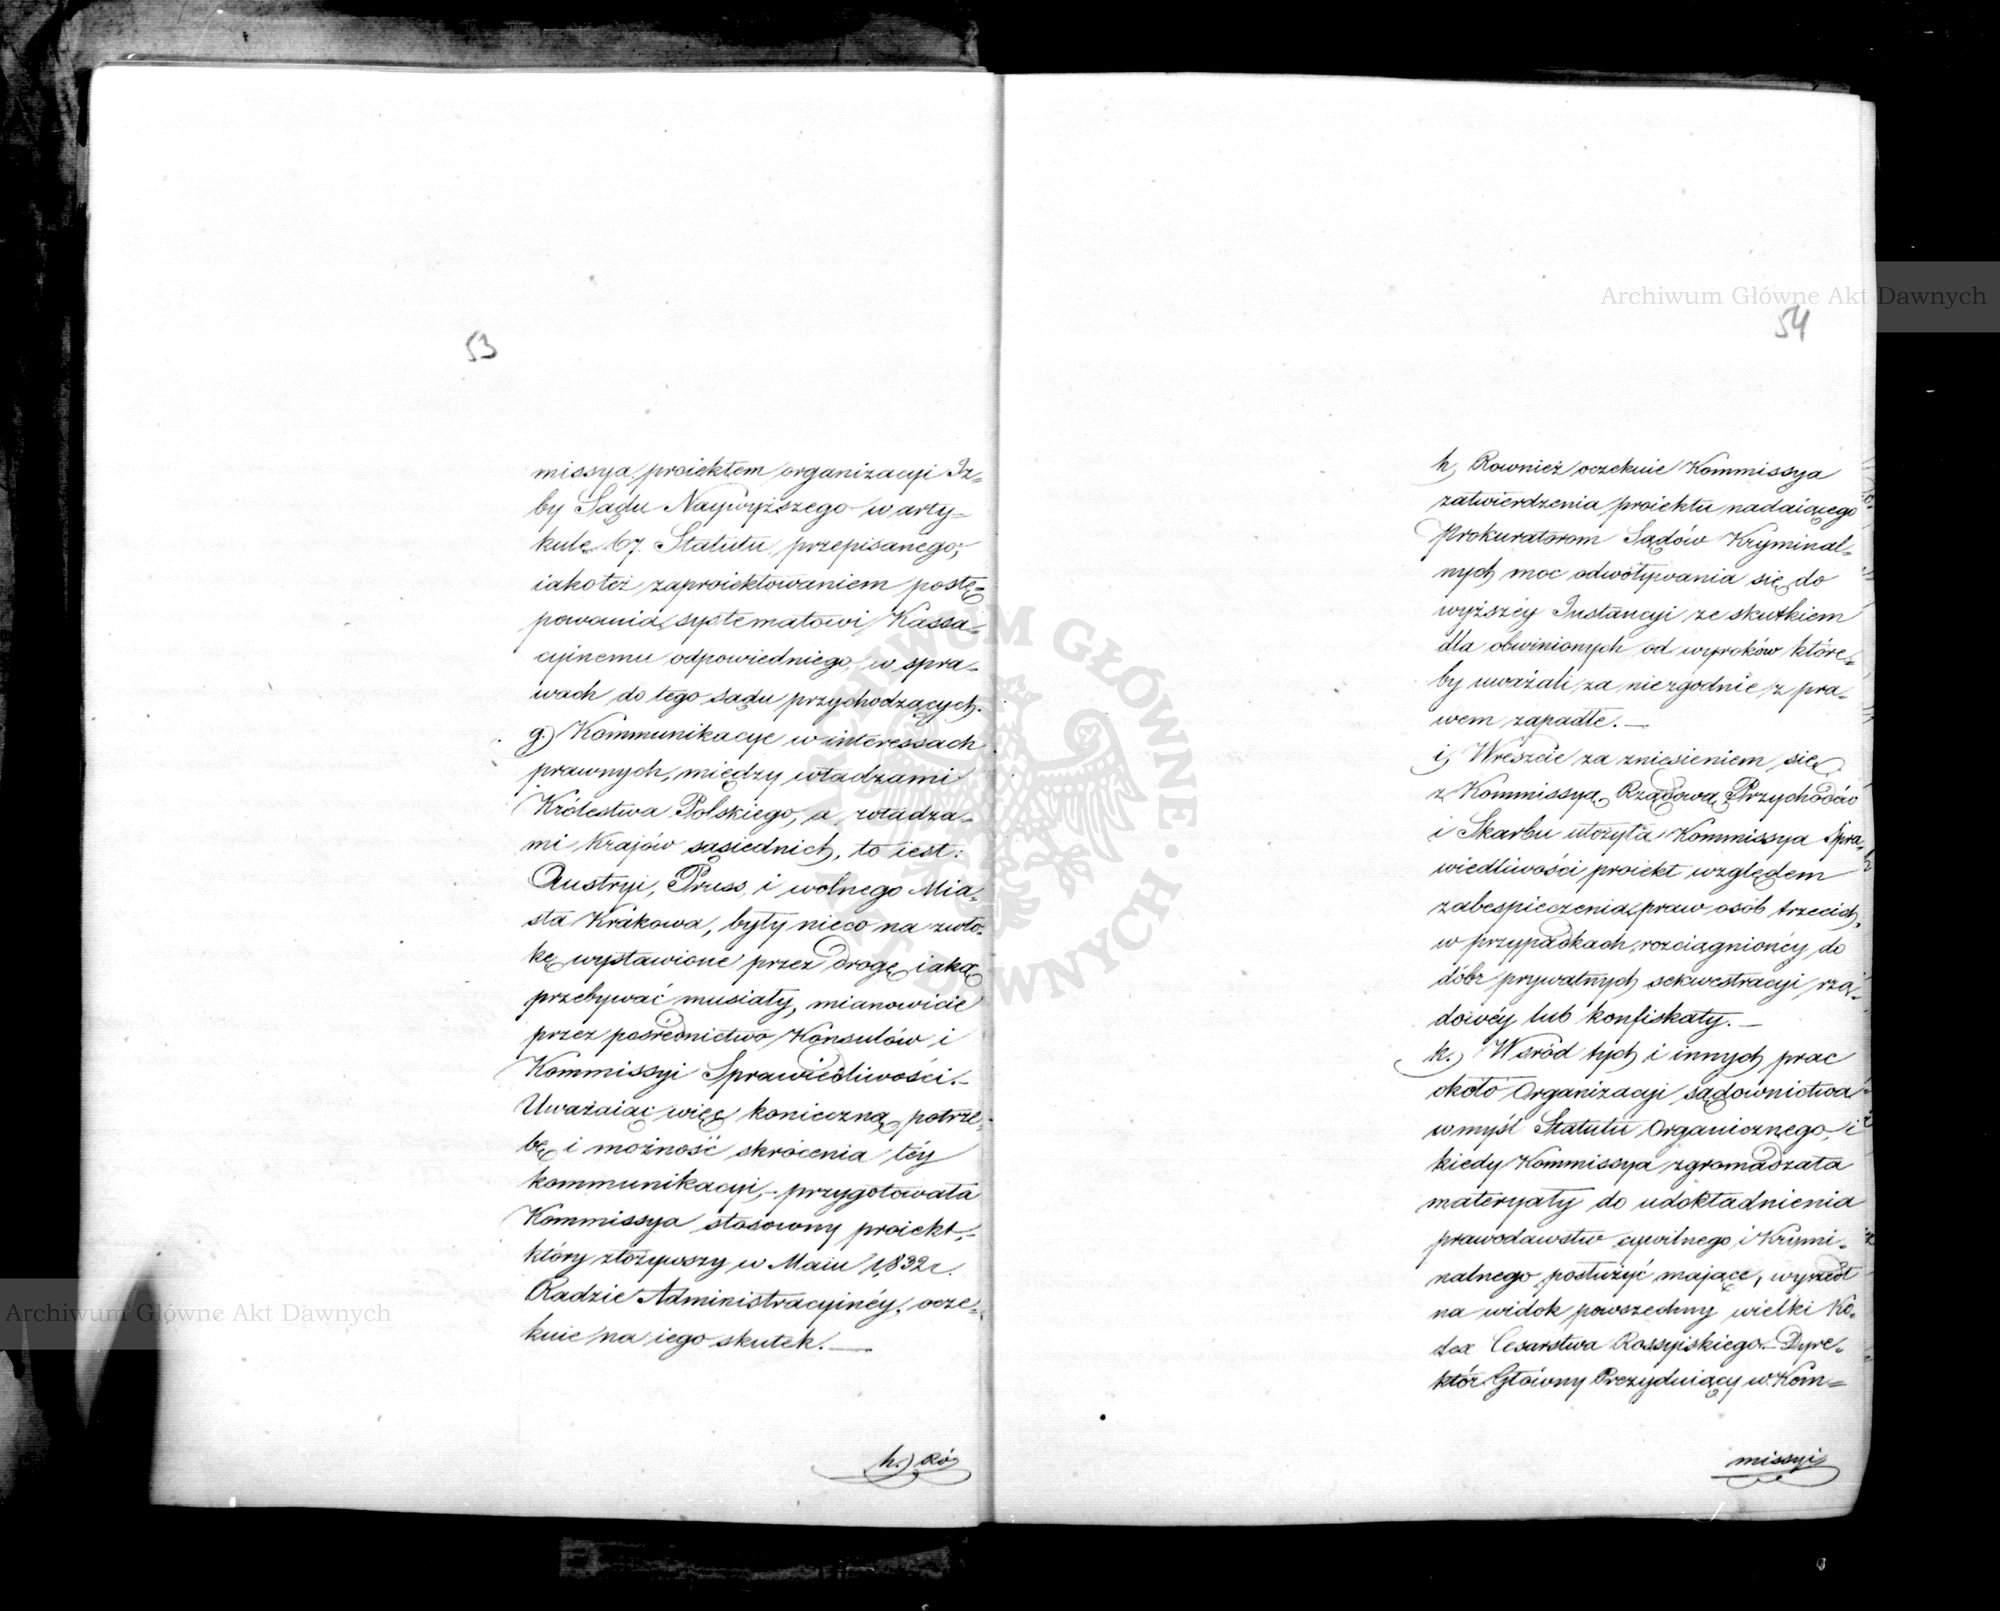 53
missya proiektem organizacyi Iz-
by Sądu Naywyższego w arty-
kule 67. Statutu przepisanego,
iakoteż zaproiektowaniem postę-
powania systematowi Kassa-
cyinemu odpowiedniego w spra-
wach do tego sądu przychodzących.
g.) Kommunikacye w interessach
prawnych, między władzami
Królestwa Polskiego, a władza-
mi Krajów sąsiednich, to iest:
Austryi, Pruss, i wolnego Mia-
sta Krakowa, były nieco na zwło-
kę wystawione przez drogę iaką
przebywać musiały, mianowicie
przez pośrednictwo Konsulów i
Kommissyi Sprawiedliwości.-
Uważaiąc więc konieczną potrze-
bę i możność skrócenia téy
kommunikacyi,- przygotowała
Kommissya stosowny proiekt,-
który złożywszy w Maiu 1832 r.
Radzie Administracyinéy, ocze-
kuie na iego skutek.—
h.) Ró
54
h, Rownież oczekuie Kommissya
zatwierdzenia proiektu nadaiącego
Prokuratorom Sądów Kryminal-
nych moc odwoływania się do
wyższéy Instancyi ze skutkiem
dla obwinionych od wyroków które-
by uważali za niezgodnie z pra-
wem zapadłe.—
i, Wreszcie za zniesieniem się
z Kommissyą Rządową Przychodów
i Skarbu ułożyła Kommissya Spra-
wiedliwości proiekt względem
zabespieczenia praw osób trzecich,
w przypadkach rozciągnionéy do
dóbr prywatnych sekwestracyi rzą-
dowéy lub konfiskaty.—
k.) Wsród tych i innych prac
około Organizacyi sądownictwa
w myśl Statutu Organicznego, i
kiedy Kommissya zgromadzała
materyały do udokładnienia
prawodawstw cywilnego i Krymi-
nalnego posłużyć maiące, wyszedł
na widok powszechny wielki Ko-
dex Cesarstwa Rossyiskiego.- Dyre-
któr Główny Prezyduiący w Kom-
missyi
Archiwum Główne Akt Dawnych
Archiwum Główne Akt Dawnych
ARCHIWUM GŁÓWNE AKT DAWNYCH